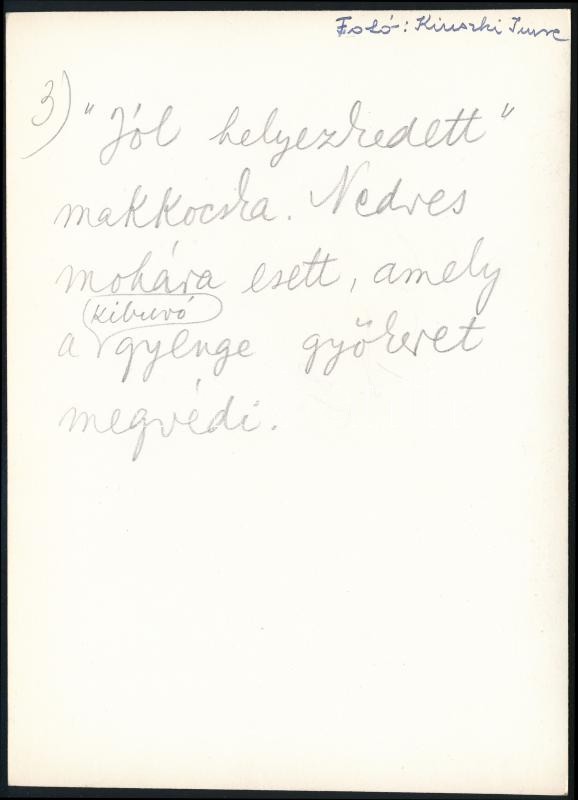 Fotó: Kinszki Imre
3) "Jól helyezkedett"
makkocska. Nedves
mohára esett, amely
kibuvó
a gyenge gyökeret
megvédi.